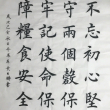 不忘初心堅
守兩個確保
牢記使命保
障糧食安全